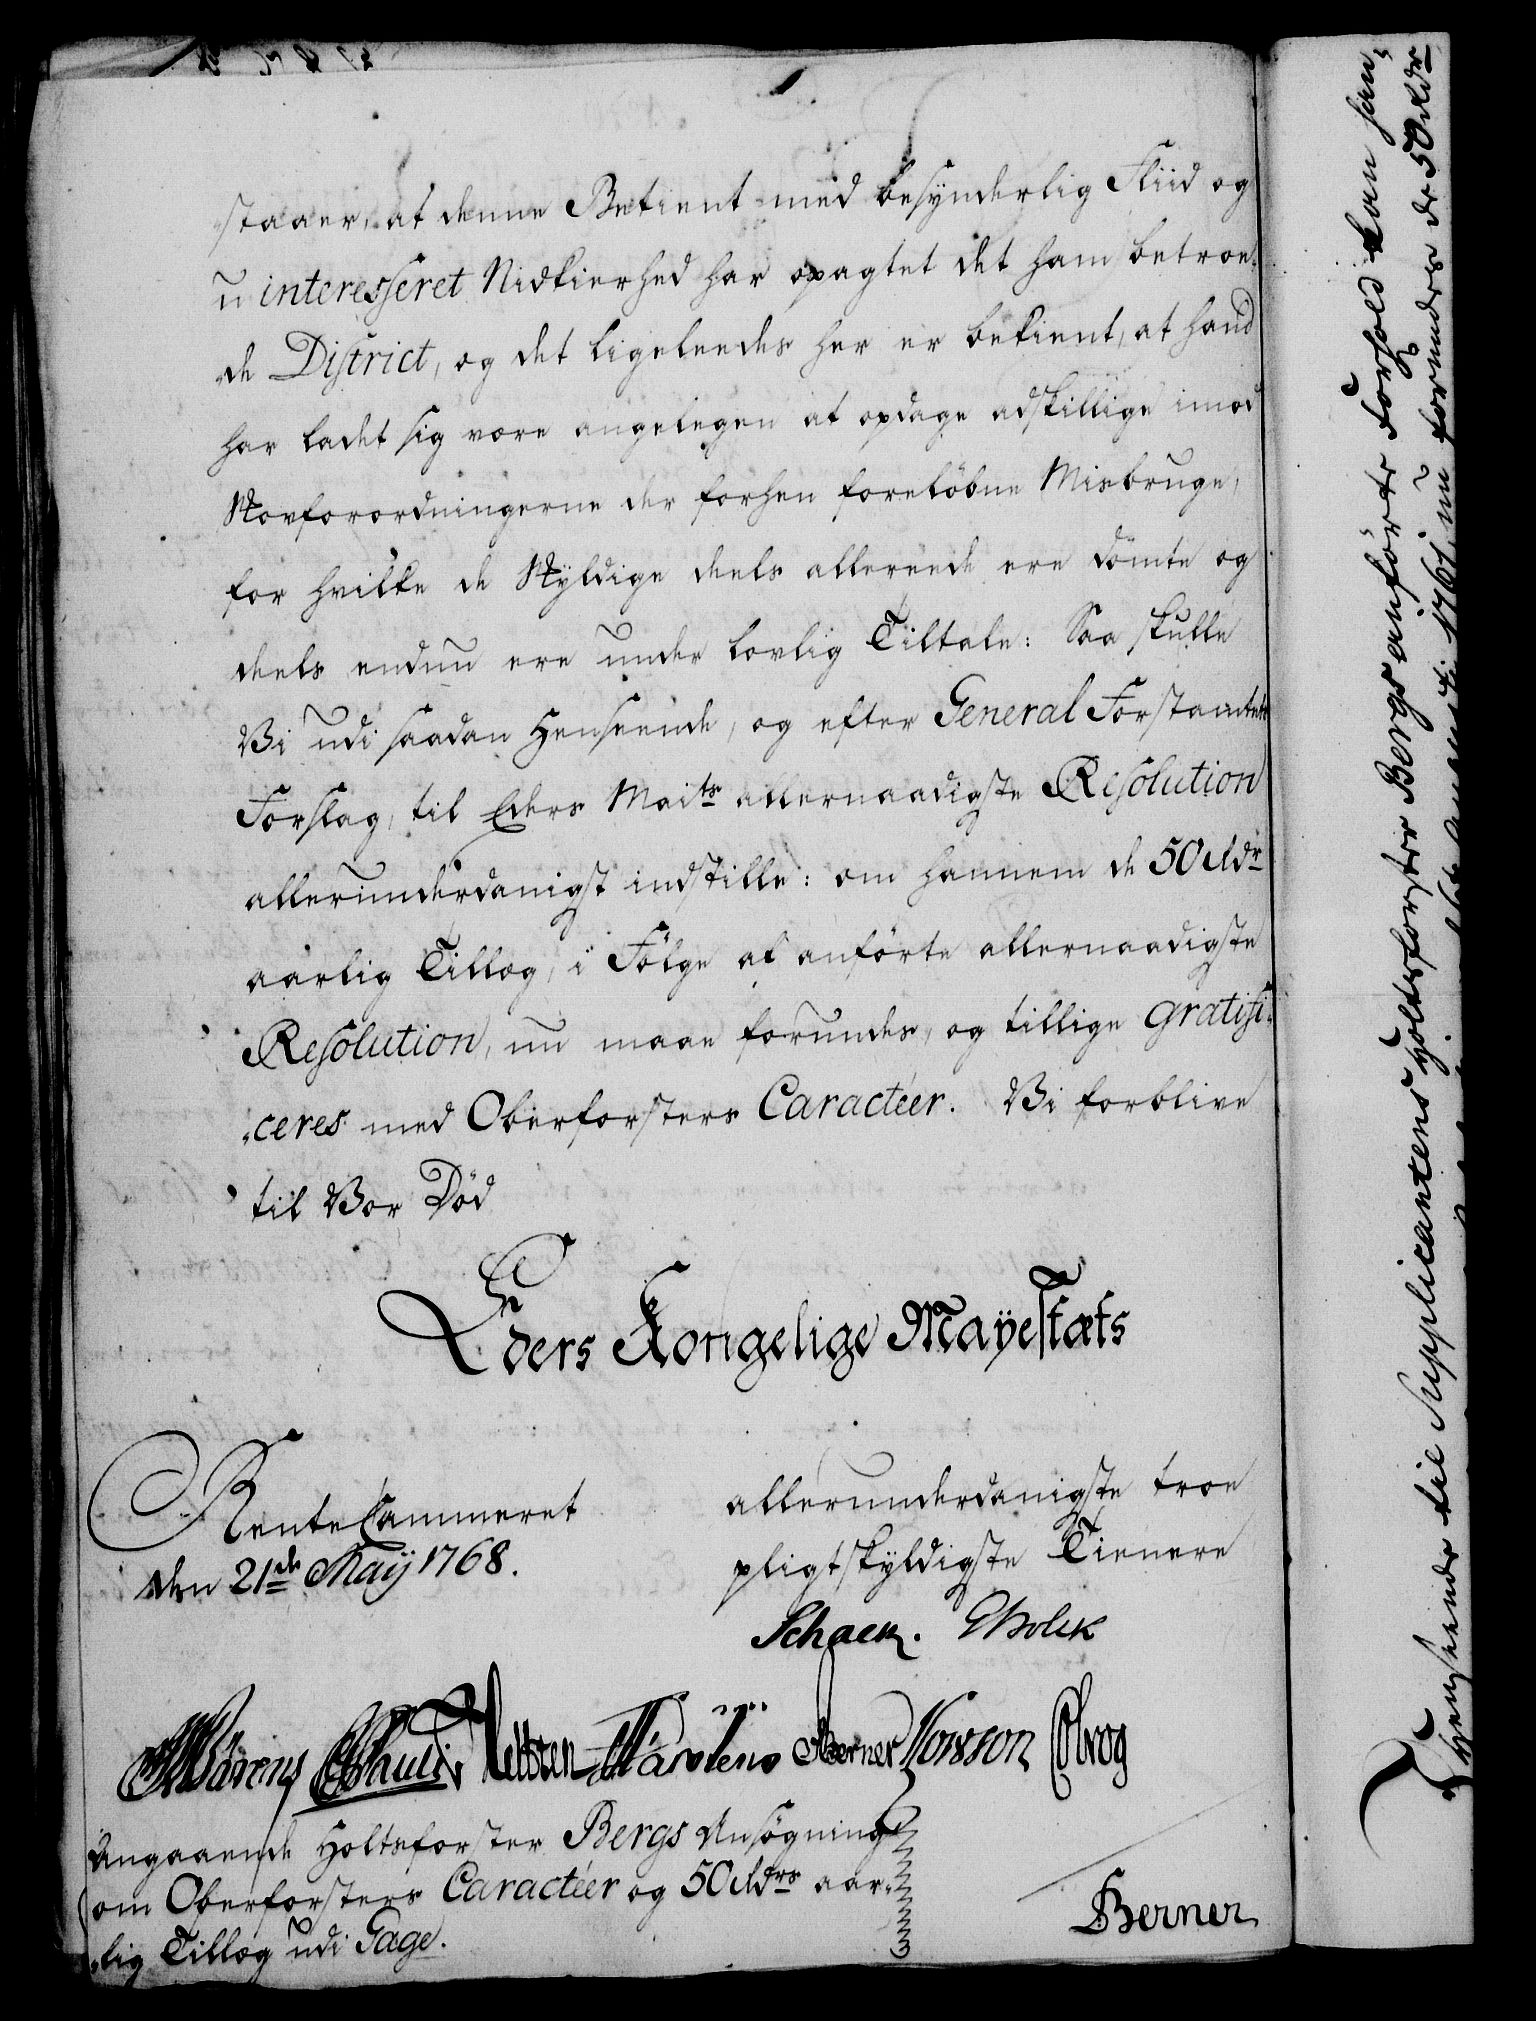 staaer, at denne Betient med besynderlig Fliid og
uinteresseret Nidkierhed har opagtet det ham betroe-
de District, og det ligeleedes her er bekient, at hand
har ladet sig være angelegen at opdage adskillige imod
Skovforordningerne der forhen foreløbne Misbruge,
for hvilke de Skyldige deels allereede ere dømte og
deels endnu ere under lovlig Tiltale: Saa skulle
Vi udi saadan Henseende, og efter General Forstamtets
Forslag, til Eders Maits allernaadigste Resolution
allerunderdanigst indstille: om hannem de 50 Rdr
aarlig Tillæg, i Følge af anførte allernaadigste
Resolution, nu maae forundes, og tillige gratifi-
ceres med Oberforsters Caractéer. Vi forblive
til Vor Død
Eders Kongelige Mayestæts
RenteCammeret
den 21de Maij 1768.
allerunderdanigste troe
pligtskyldigste Tienere
Schack. Holck
Berner
Angaaende Holtzforster Bergs Ansøgning
om Oberforsters Caractéer og 50 Rdrs aar-
lig Tillæg udi Gage.
Berner
Henseende til Supplicantens Holtzforster Bergs anførte Forhold kan ham
1767, nu forundes de 50 Rdr